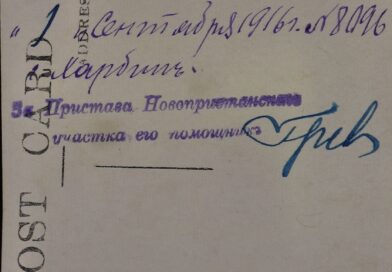 " 1 " Сентября 1916 г. № 8096
Харбинъ.
За Пристава Новопристанскаго
участка его помощникъ
POST CARD
ADDRESS